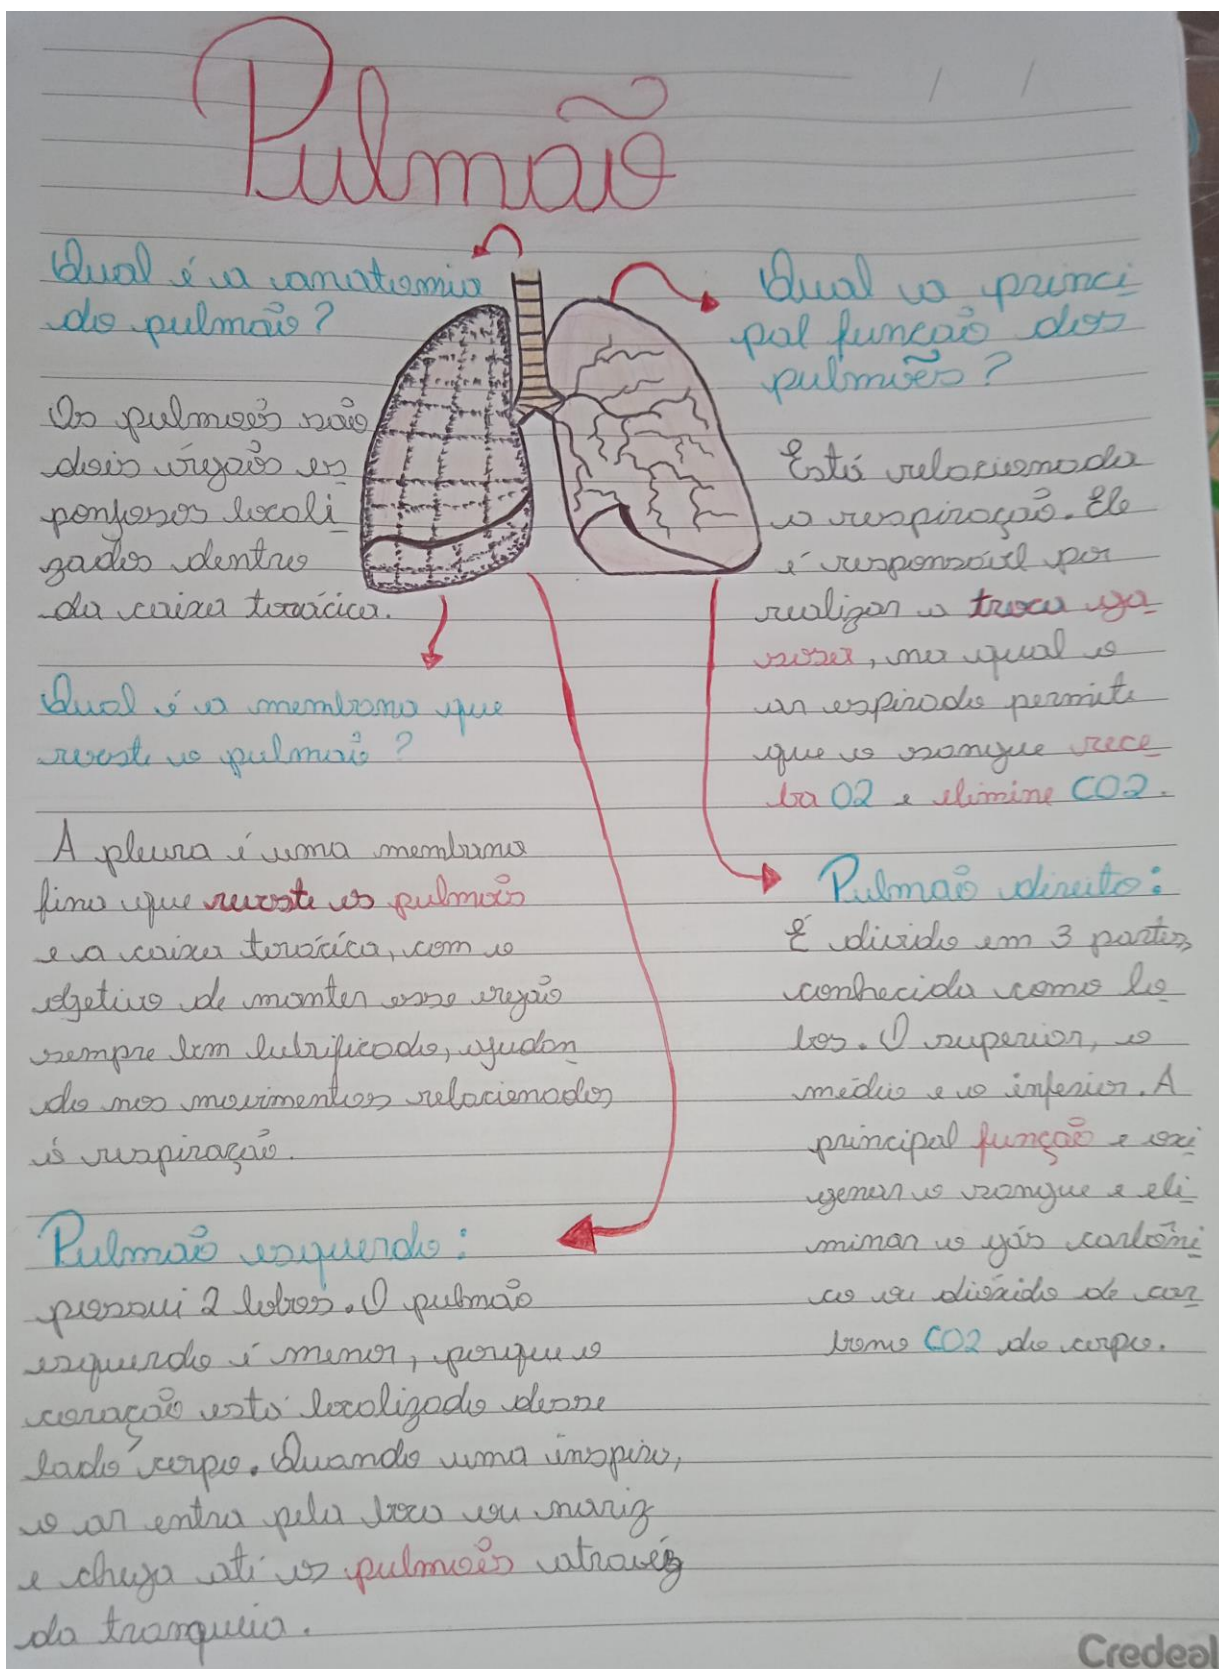 Pulmão
Qual é a anatomia
do pulmão?
Os pulmões são
dois órgãos es
ponjosos locali
zados dentro
da caixa torácica.
Qual é a membrana que
reveste o pulmão?
A pleura é uma membrana
fina que reveste os pulmões
e a caixa torácica, com o
objetivo de manter esse orgão
sempre bem lubrificado, ajudan
do nos movimentos relacionados
à respiração.
Pulmão esquerdo:
possui 2 lobos. O pulmão
esquerdo é menor, porque o
coração está localizado desse
lado corpo. Quando uma inspira,
o ar entra pela boca ou nariz
e chega até os pulmões atravéz
da tranqueia.
Qual a princi
pal função dos
pulmões?
Está relacionada
a respiração. Ele
é responsável por
realizar a troca ga
sosa, na qual o
ar espirado permite
que o sangue rece
ba O2 e elimine CO2.
Pulmão direito:
É divido em 3 partes,
conhecida como lo
bos. O superior, o
médio e o inferior. A
principal função e oxi
genar o sangue e eli
minar o gás carbôni
co ou dióxido de car
bono CO2 do corpo.
Credeal